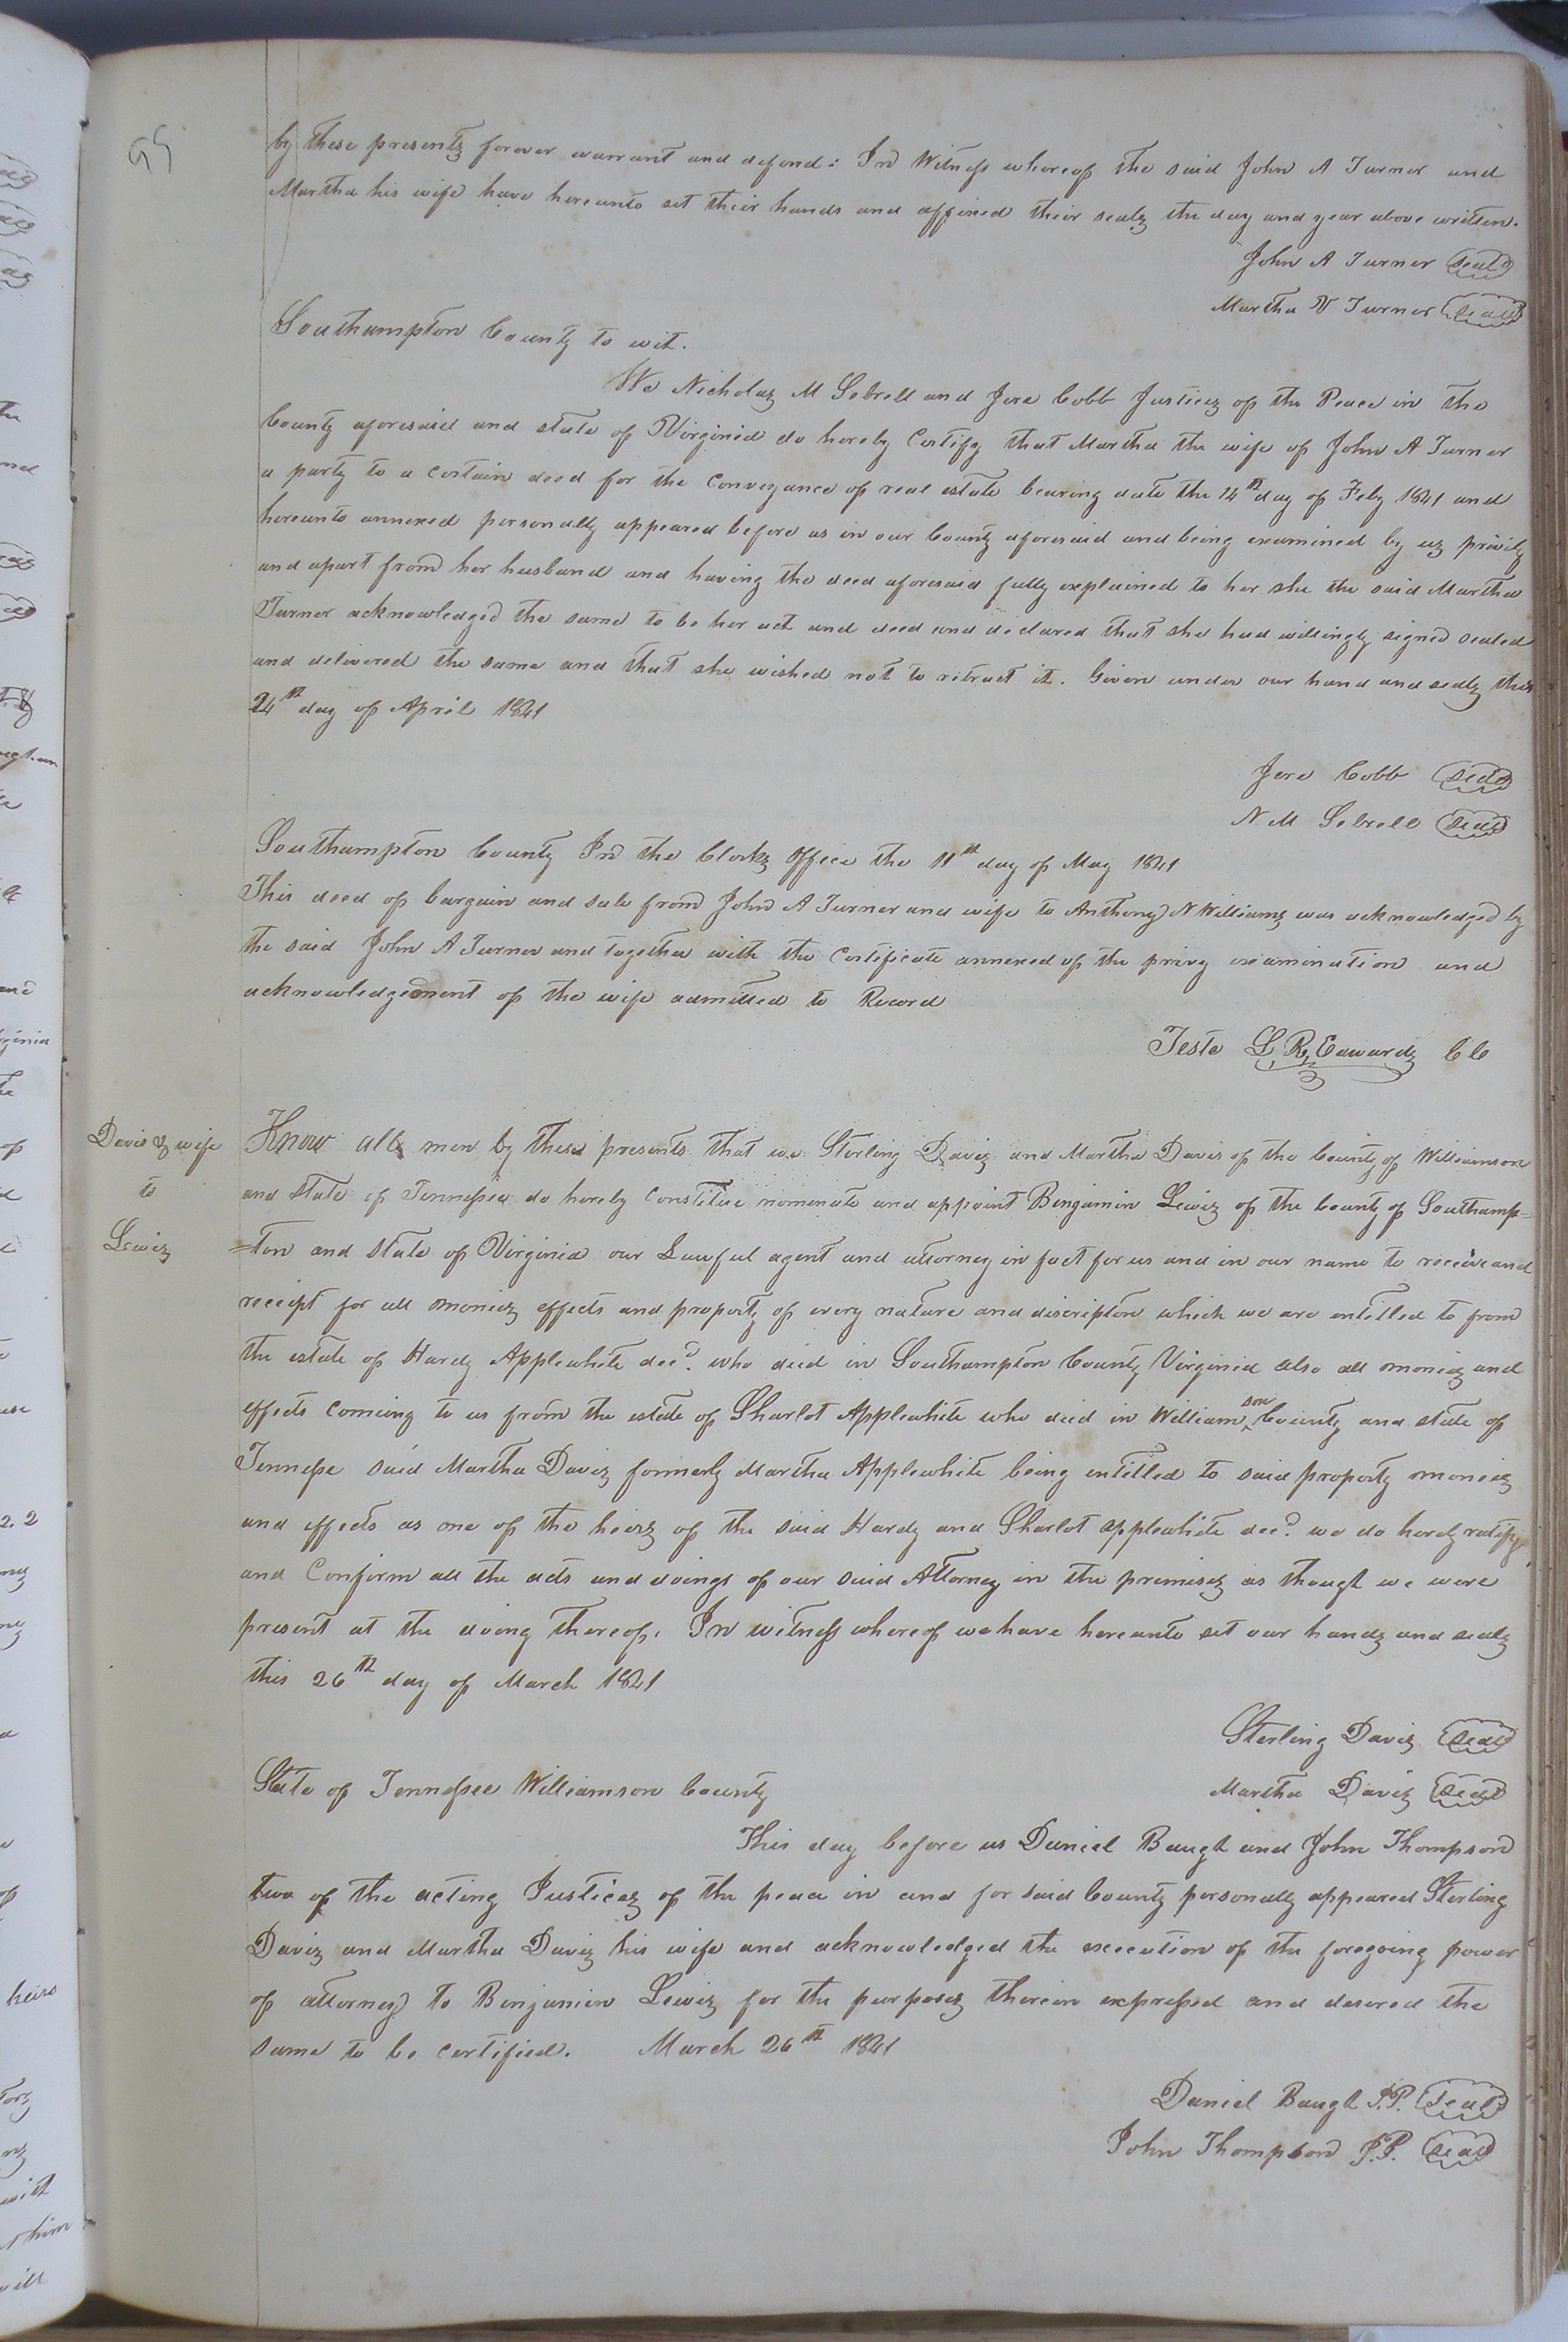 95
by these presents forever warrant and defend: In Witness whereof the said John A Turner and
Martha his wife have hereunto set their hands and affixed their seals the day and year above written.
John A Turner seal
Martha V Turner seal
Southampton County to wit.
We Nicholas M Sebrell and Jere Cobb Justices of the Peace in the
County aforesaid and state of Virginia do hereby Certify that Martha the wife of John A Turner
a party to a certain deed for the Conveyance of real estate bearing date the 24th day of Feby 1841 and
hereunto annexed personally appeared before us in our County aforesaid and being examined by us privily
and apart from her husband and having the deed aforesaid fully explained to her she the said Martha
Turner acknowledged the same to be her act and deed and declared that she had willingly signed sealed
and delivered the same and that she wished not to retract it. Given under our hand and seals this
24th day of April 1841
Jere Cobb seal
N M Sebrell seal
Southampton County In the Clerks Office the 11th day of May 1841
This deed of bargain and sale from John A Turner and wife to Anthony N Williams was acknowledged by
the said John A Turner and together with the Certificate annexed of the privy examination and
acknowledgement of the wife admitted to Record
Teste L R Edwards CC
Davis & wife
to
Lewis
Know all men by these presents that we Sterling Davis and Martha Davis of the County of Williamson
and state of Tennessee do hereby Constitue nominate and appoint Benjamin Lewis of the County of Southamp=
=ton and state of Virginia our Lawful agent and attorney in fact for us and in our name to receive and
receipt for all monies effects and property of every nature and discripton which we are entitled to from
the estate of Hardy Applewhite decd. who died in Southampton County Virginia also all monies and
effects Coming to us from the estate of Sharlot Applewhite who died in William^son County and state of
Tennesse said Martha Davis formerly Martha Applewhite being entitled to said property monies
and effects as one of the heirs of the said Hardy and Sharlot applewhite decd. we do herby ratify
and Confirm all the acts and doings of our said Attorney in the premises as though we were
present at the doing thereof. In witness whereof we have hereunto set our hands and seals
this 26th day of March 1841
Sterling Davis seal
State of Tennessee Williamson County
Martha Davis seal
This day before us Daniel Baugh and John Thompson
two of the acting Justices of the peace in and for said County personally appeared Sterling
Davis and Martha Davis his wife and acknowledged the execution of the foregoing power
of attorney to Benjamin Lewis for the purposes therein expressed and desered the
same to be certified. March 26th 1841
Daniel Baugh J.P. seal
John Thompson J.P. seal